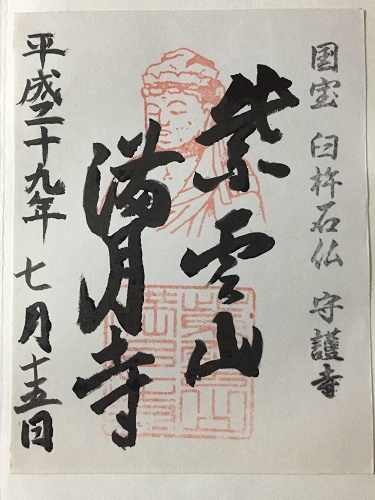 国宝 臼杵石仏 守護寺
紫雲山
満月寺
平成二十九年 七月十五日